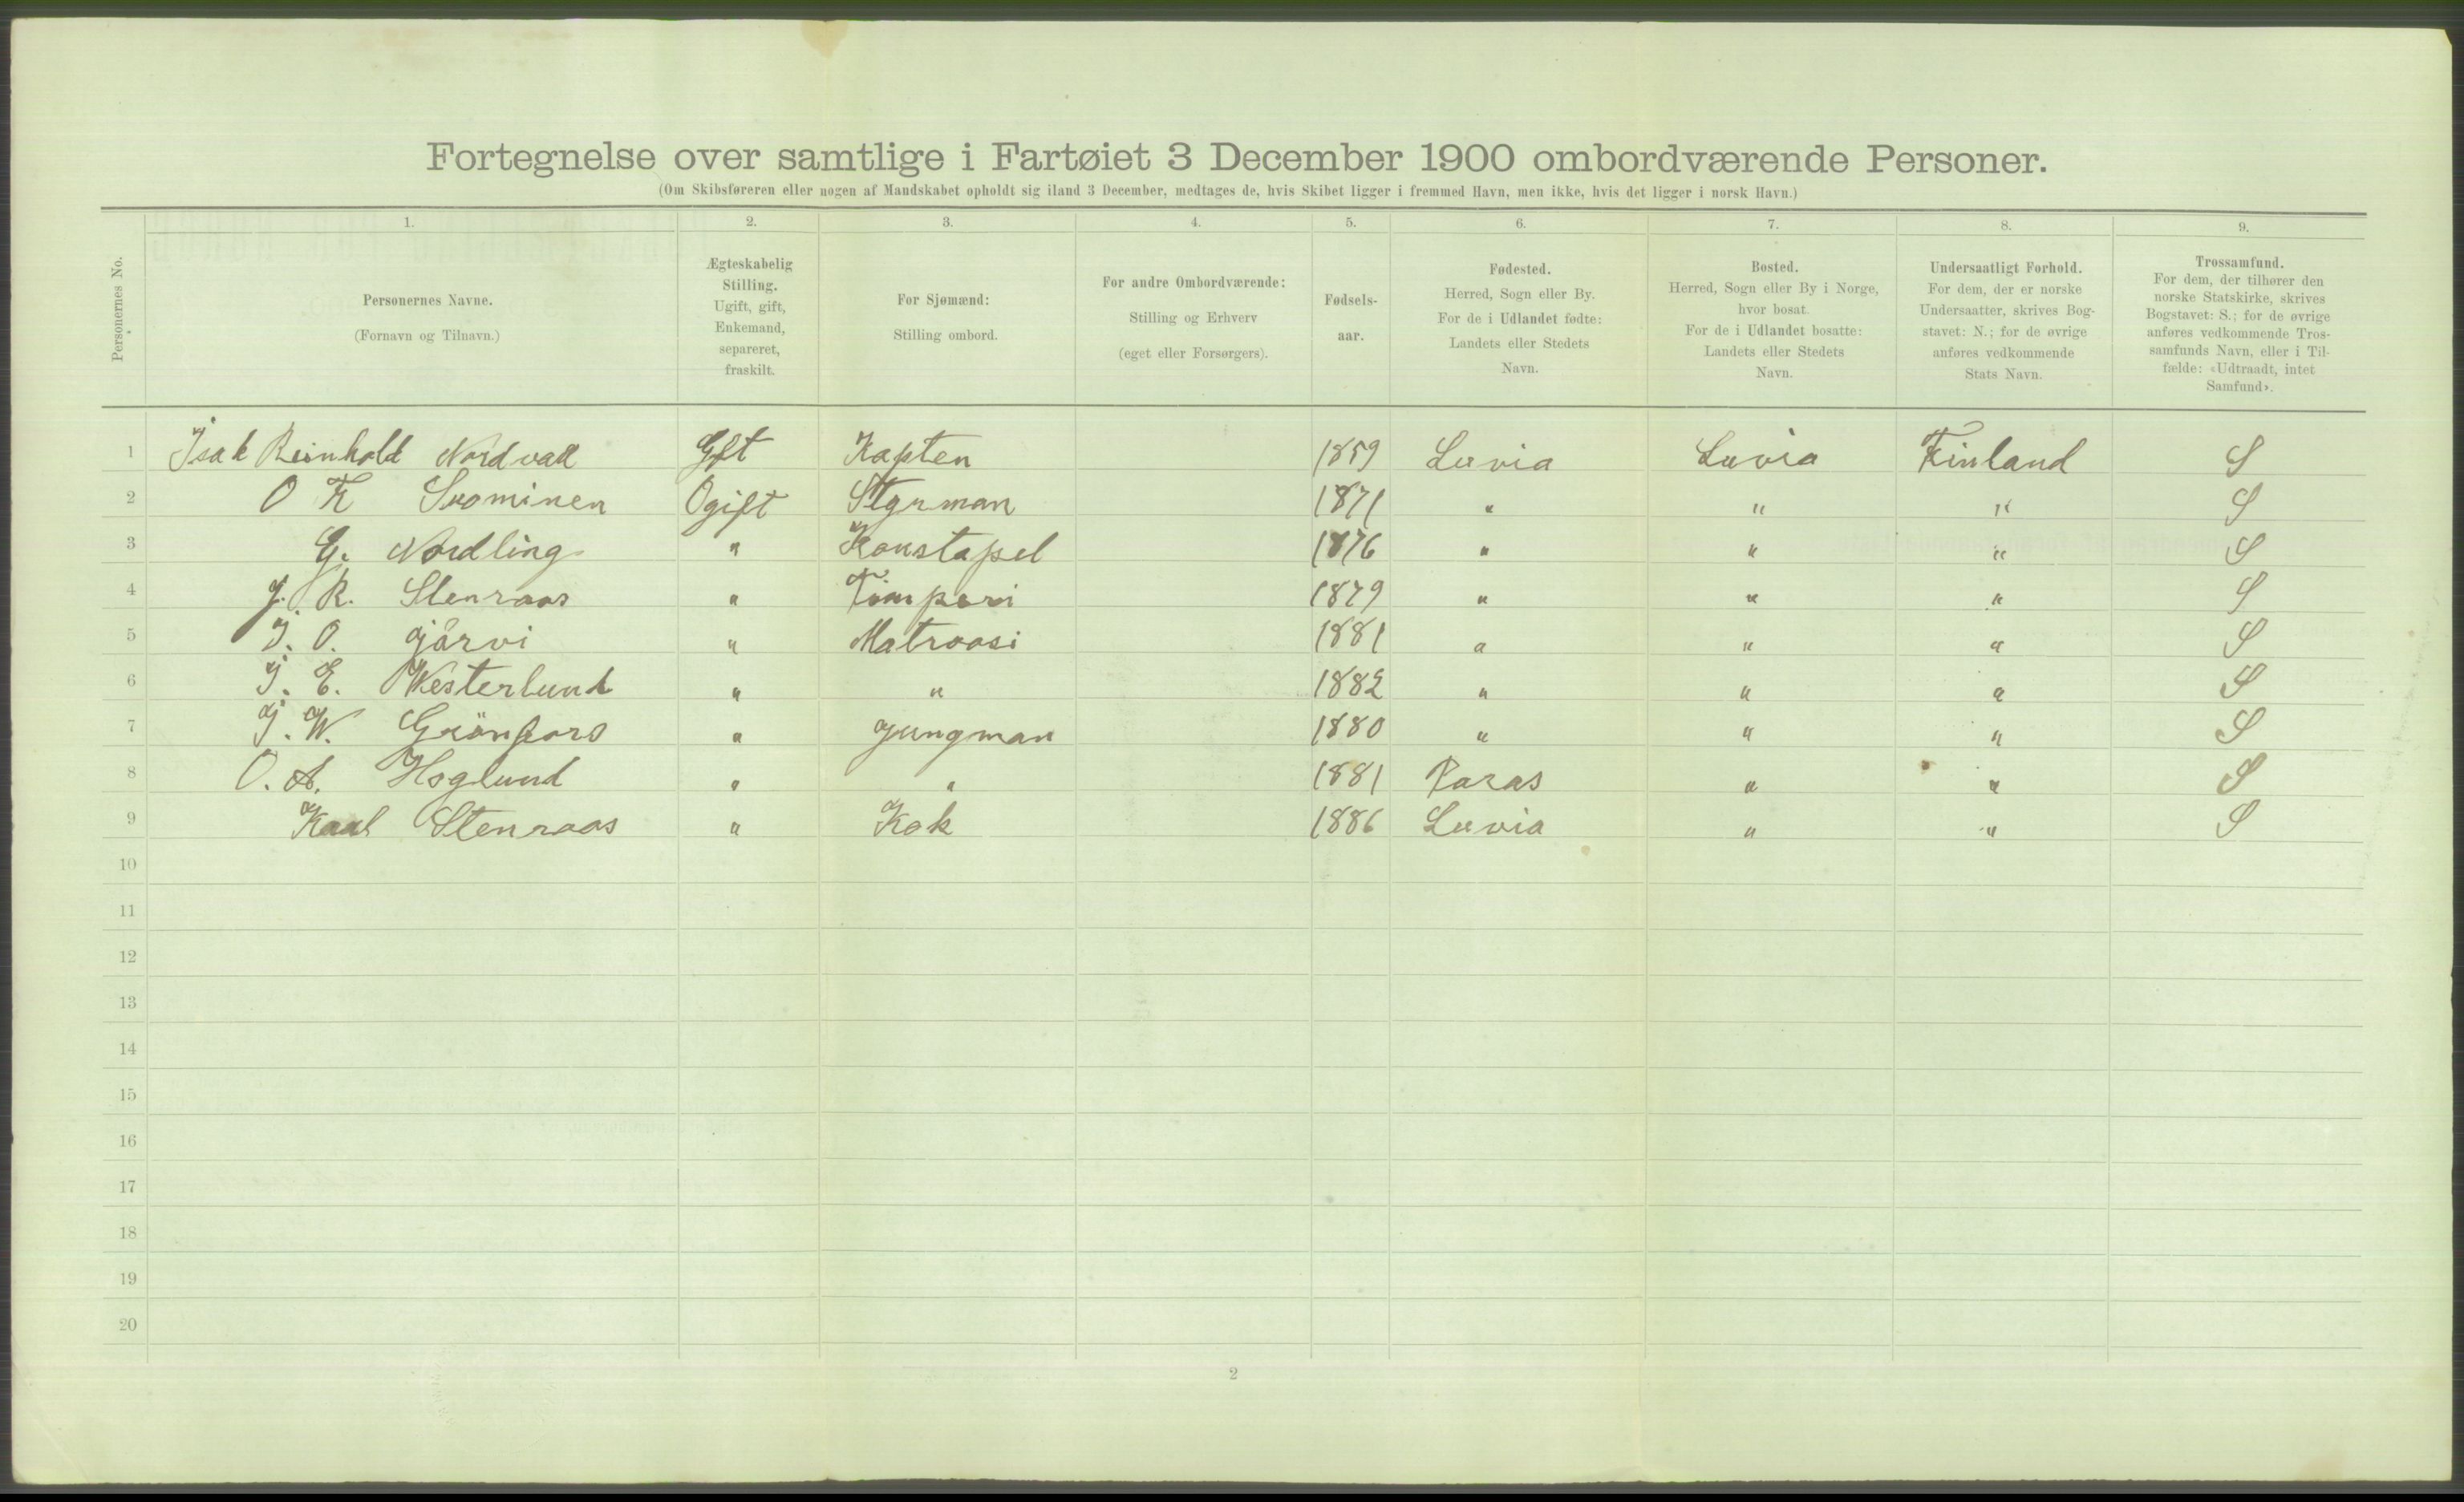 Fortegnelse over samtlige i Fartøiet 3 December 1900 ombordværende Personer.
(Om Skibsføreren eller nogen af Mandskabet opholdt sig iland 3 December, medtages de, hvis Skibet ligger i fremmed Havn, men ikke, hvis det ligger i norsk Havn.)
1. 2. 3. 4. 5. 6. 7. 8. 9.
Personernes No.
Personernes Navne.
(Fornavn og Tilnavn.)
Ægteskabelig
Stilling.
Ugift, gift,
Enkemand,
separeret,
fraskilt.
For Sjømænd:
Stilling ombord.
For andre Ombordværende:
Stilling og Erhverv
(eget eller Forsørgers).
Fødsels-
aar.
Fødested.
Herred, Sogn eller By.
For de i Udlandet fødte:
Landets eller Stedets
Navn.
Bosted.
Herred, Sogn eller By i Norge,
hvor bosat.
For de i Udlandet bosatte:
Landets eller Stedets
Navn.
Undersaatligt Forhold.
For dem, der er norske
Undersaatter, skrives Bog-
stavet: N.; for de øvrige
anføres vedkommende
Stats Navn.
Trossamfund.
For dem, der tilhører den
norske Statskirke, skrives
Bogstavet: S.; for de øvrige
anføres vedkommende Tros-
samfunds Navn, eller i Til-
fælde: «Udtraadt, intet
Samfund».
1 Isak Reinhold Nordvall Gift Kapten 1859 Luvia Luvia Finland S
2 O K Suominen Ogift Styrman 1871 " " " S
3 G. Nordling " Konstapel 1876 " " " S
4 J. R. Stenroos " Timperi 1879 " " " S
5 J. O. Järvi " Matroosi 1881 " " " S
6 J. E. Westerlund " " 1882 " " " S
7 J. W. Grönfors " Jungman 1880 " " " S
8 O. A. Höglund " " 1881 " " S
9 Kaal Stenroos " Kok 1886 Luvia " " S
10
11
12
13
14
15
16
17
18
19
20
2